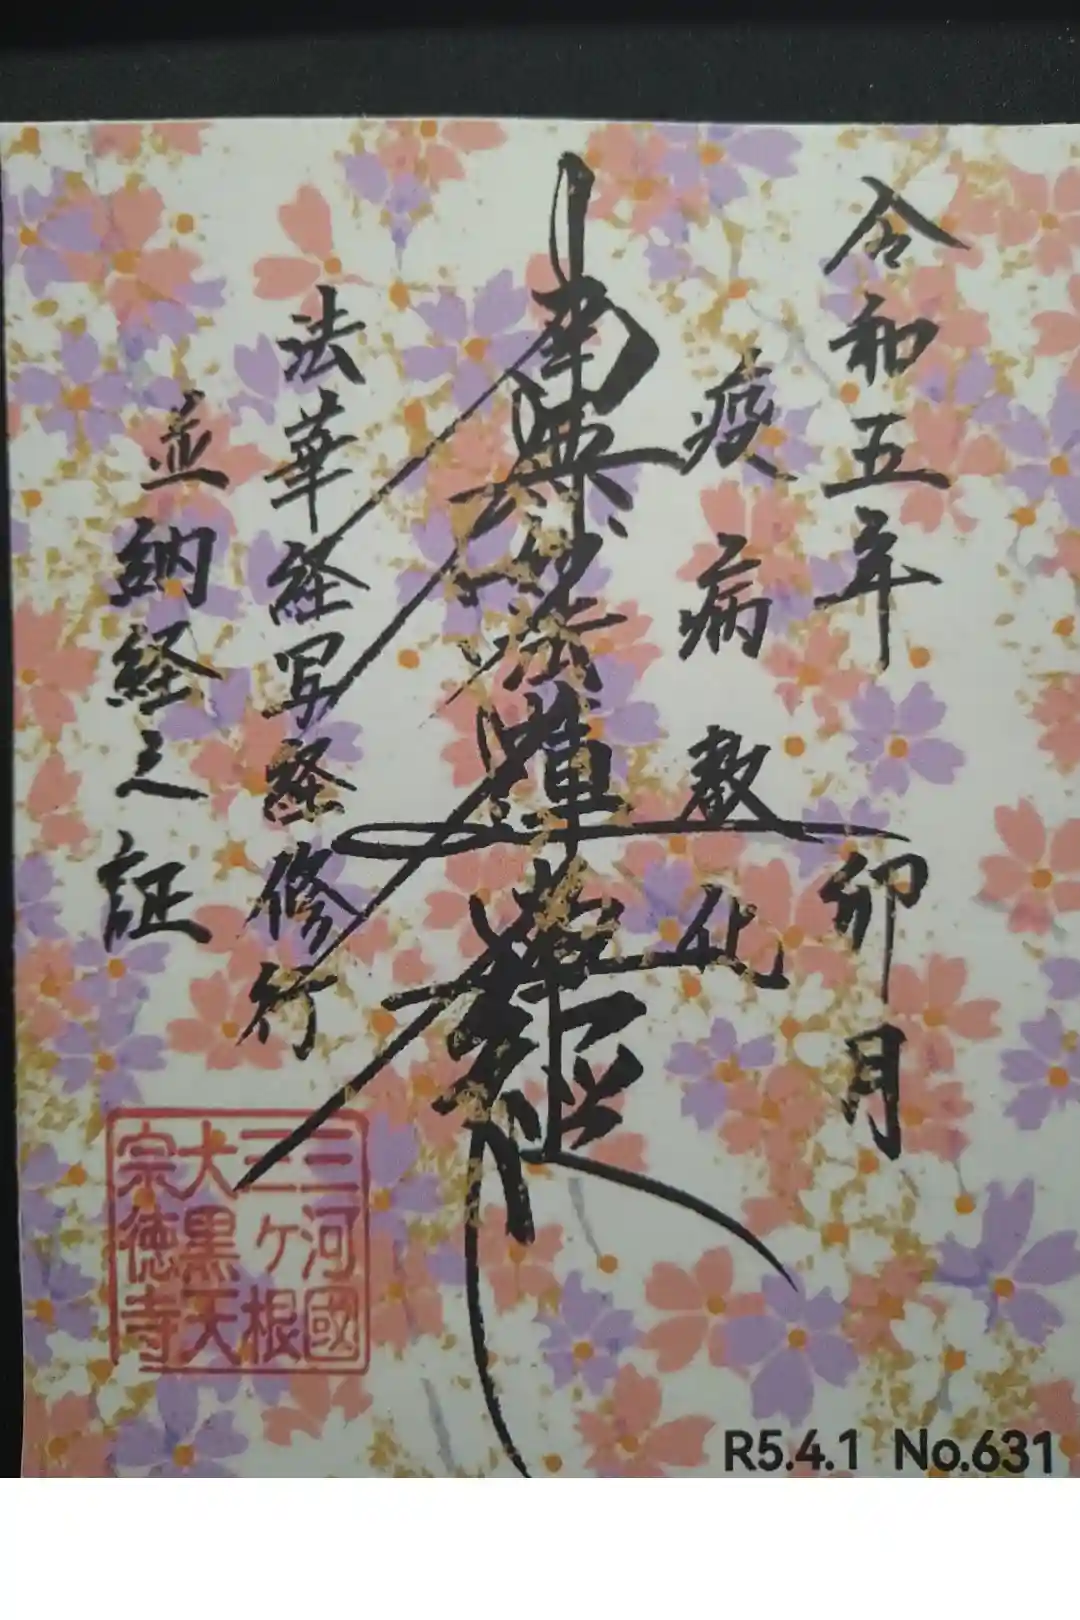 令和五年 卯月
疫病散
南無妙法蓮華経
法華経写経修行
並納経之証
三河國
三ヶ根
大黒天
宗徳寺
R5.4.1 No.631